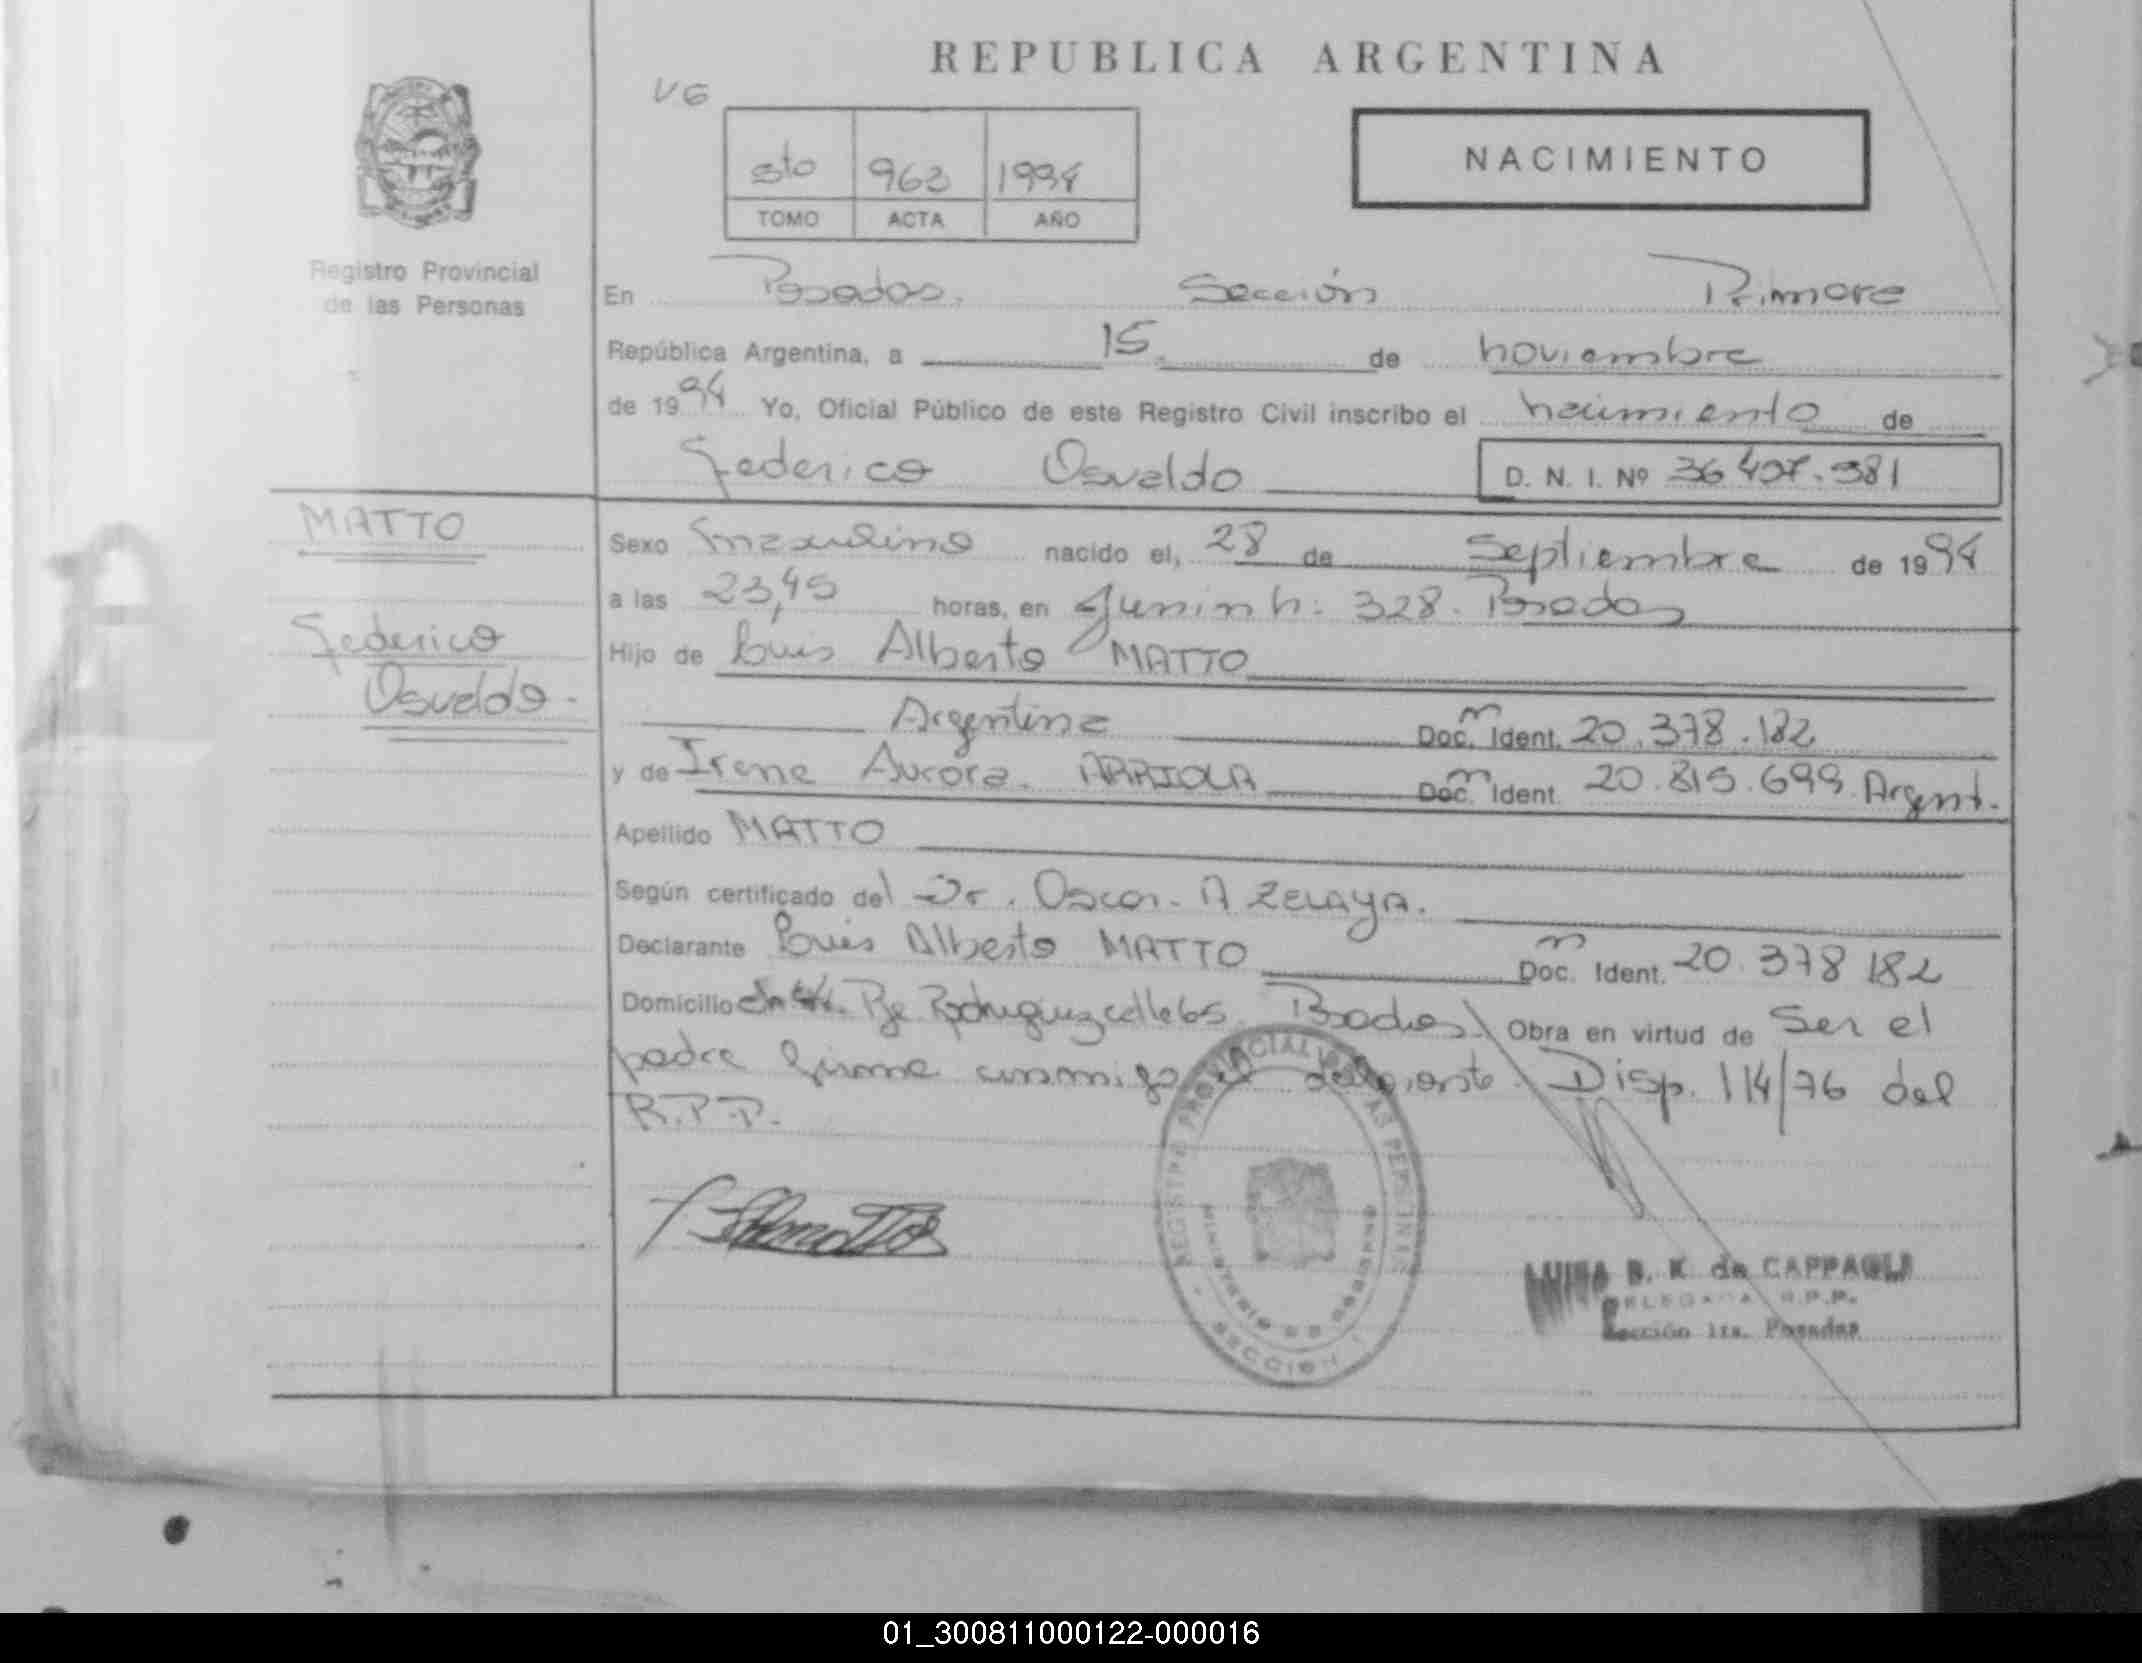 REPUBLICA ARGENTINA
VG
5to 963 1994
TOMO ACTA AÑO
NACIMIENTO
Registro Provincial
de las Personas
En Posadas. Sección Primera
República Argentina, a 15 de noviembre
de 1994 Yo, Oficial Público de este Registro Civil inscribo el nacimiento de
Federico Osvaldo D. N. I. Nº 36 407.981
MATTO
Federico
Osvaldo-
Sexo masculino nacido el, 28 de Septiembre de 1994
a las 23,45 horas, en Junin n: 328. Posadas
Hijo de Luis Alberto MATTO
Argentina Doc. Ident. 20.378.182
y de Irene Aurora. ARRIOLA Doc. Ident. 20.815.699 Argent.
Apellido MATTO
Según certificado del Dr. Oscar. A ZELAYA.
Declarante Luis Alberto MATTO Doc. Ident. 20.378 182
Domicilio Rodriguez calle 65 Posadas Obra en virtud de Ser el
padre firma conmigo Disp. 114/76 del
R.P.P.
REGISTRO PROVINCIAL DE LAS PERSONAS
MINISTERIO DE GOBIERNO
SECCION 1
LUISA B. K. de CAPPAGLI
DELEGADA R.P.P.
Sección 1ra. Posadas
01_300811000122-000016